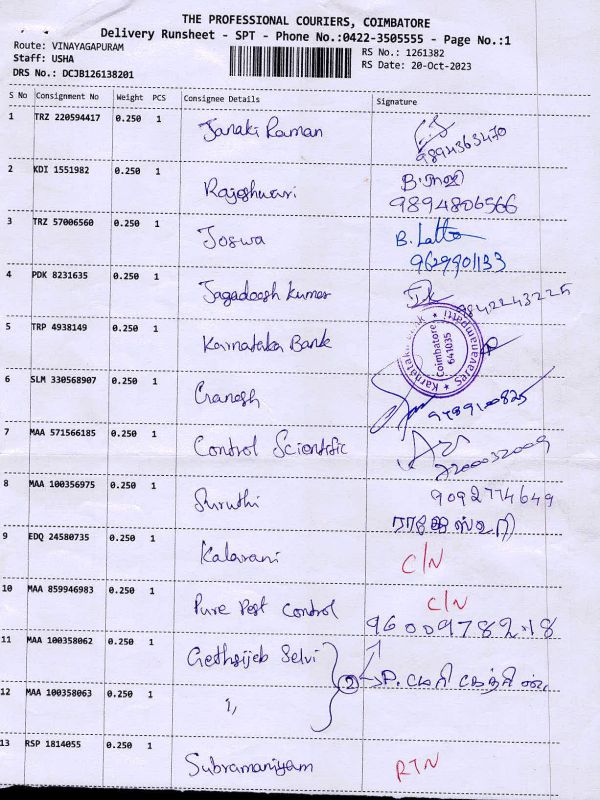 THE PROFESSIONAL COURIERS, COIMBATORE
Delivery Runsheet - SPT - Phone No.:0422-3505555 - Page No.:1
Route: VINAYAGAPURAM
Staff: USHA
DRS No.: DCJB126138201
RS No.: 1261382
RS Date: 20-Oct-2023
S No Consignment No Weight PCS Consignee Details Signature
1 TRZ 220594417 0.250 1 Janaki Raman 9894363470
2 KDI 1551982 0.250 1 Rajeshwari B.
9894806566
3 TRZ 57006560 0.250 1 Joswa B. Latto
9629901133
4 PDK 8231635 0.250 1 Jagadeesh Kumar 9842243225
5 TRP 4938149 0.250 1 Karnataka Bank
Karnataka Bank * Saravanampatti *
Coimbatore
641035
6 SLM 330568907 0.250 1 Ganesh 9789100825
7 MAA 571566185 0.250 1 Control Scientific 7200032009
8 MAA 100356975 0.250 1 Suruthi 9092774649
9 EDQ 24580735 0.250 1 Kalairani C/N
10 MAA 859946983 0.250 1 Pure Pest Control C/N
9600978218
11 MAA 100358062 0.250 1 Gethsijeb Selvi
2 P.
12 MAA 100358063 0.250 1 "
13 RSP 1814055 0.250 1 Subramaniyam RTN